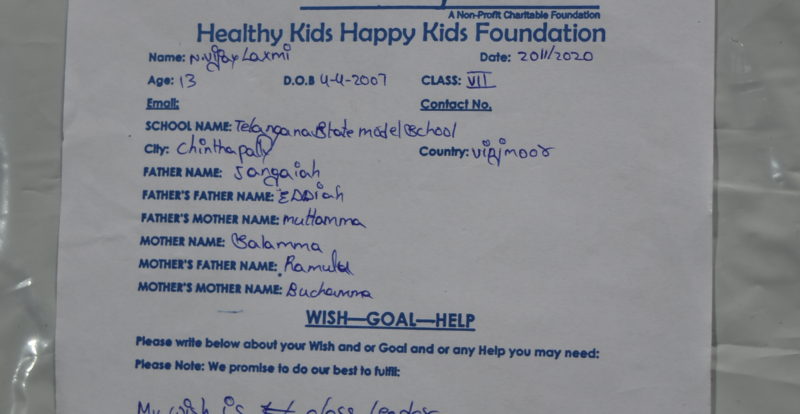 A Non-Profit Charitable Foundation
Healthy Kids Happy Kids Foundation
Name: N.vijay Laxmi Date: 2011/2020
Age: 13 D.O.B 4-4-2007 CLASS: VII
Email: Contact No.
SCHOOL NAME: Telangana State model School
City: Chinthapally Country:
FATHER NAME: Jangaiah
FATHER'S FATHER NAME: EDDiah
FATHER'S MOTHER NAME: muttamma
MOTHER NAME: Salamma
MOTHER'S FATHER NAME: Ramulu
MOTHER'S MOTHER NAME: Buchamma
WISH—GOAL—HELP
Please write below about your Wish and or Goal and or any Help you may need:
Please Note: We promise to do our best to fulfil:
My wish is class leader